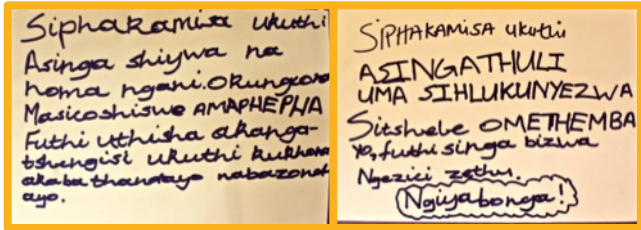 Siphakamisa ukuthi
Asinga shiywa na
noma ngani. Okungcono
Masicoshiswe AMAPHEPHA
Futhi uthisha akanga-
tshengisi ukuthi kukhona
akabathandayo nabazond
ayo.
SIPHAKAMISA ukuthi
ASINGATHULI
UMA SIHLUKUNYEZWA
Sitshele OMETHEMBA
yo, futhi singa bizwa
Ngezici zethu.
Ngiyabonga!